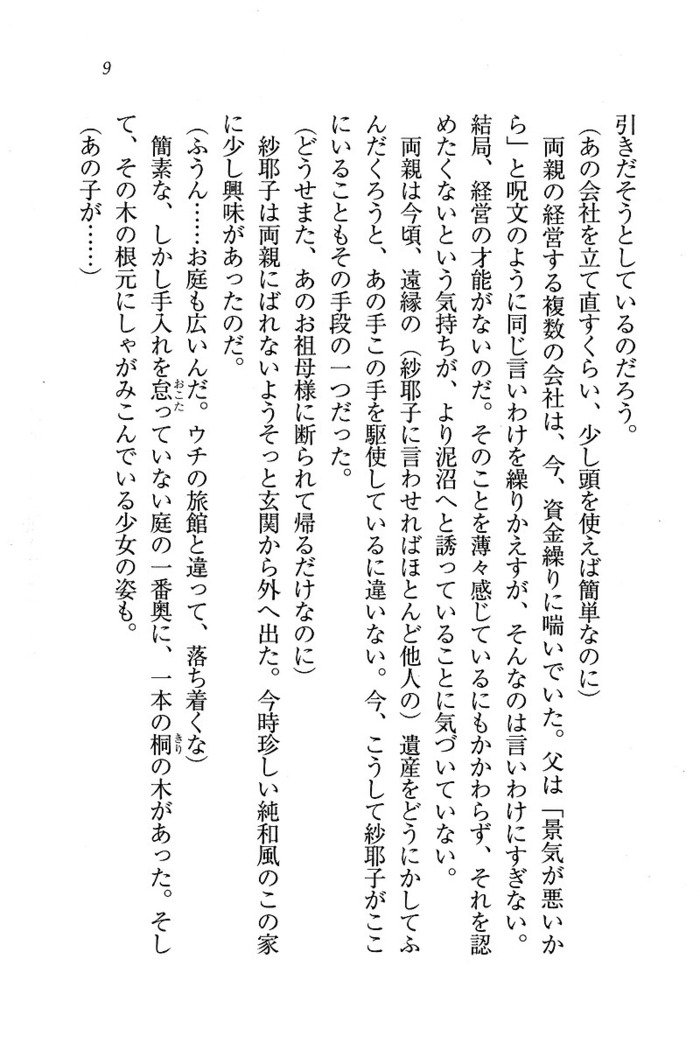 9
引きだそうとしているのだろう。
(あの会社を立て直すくらい、少し頭を使えば簡単なのに)
両親の経営する複数の会社は、今、資金繰りに喘いでいた。父は「景気が悪いか
ら」と呪文のように同じ言いわけを繰りかえすが、そんなのは言いわけにすぎない。
結局、経営の才能がないのだ。そのことを薄々感じているにもかかわらず、それを認
めたくないという気持ちが、より泥沼へと誘っていることに気づいていない。
両親は今頃、遠縁の(紗耶子に言わせればほとんど他人の)遺産をどうにかしてふ
んだくろうと、あの手この手を駆使しているに違いない。今、こうして紗耶子がここ
にいることもその手段の一つだった。
(どうせまた、あのお祖母様に断られて帰るだけなのに)
紗耶子は両親にばれないようそっと玄関から外へ出た。今時珍しい純和風のこの家
に少し興味があったのだ。
(ふうん……お庭も広いんだ。ウチの旅館と違って、落ち着くな)
簡素な、しかし手入れを怠っていない庭の一番奥に、一本の桐の木があった。そし
て、その木の根元にしゃがみこんでいる少女の姿も。
(あの子が……)